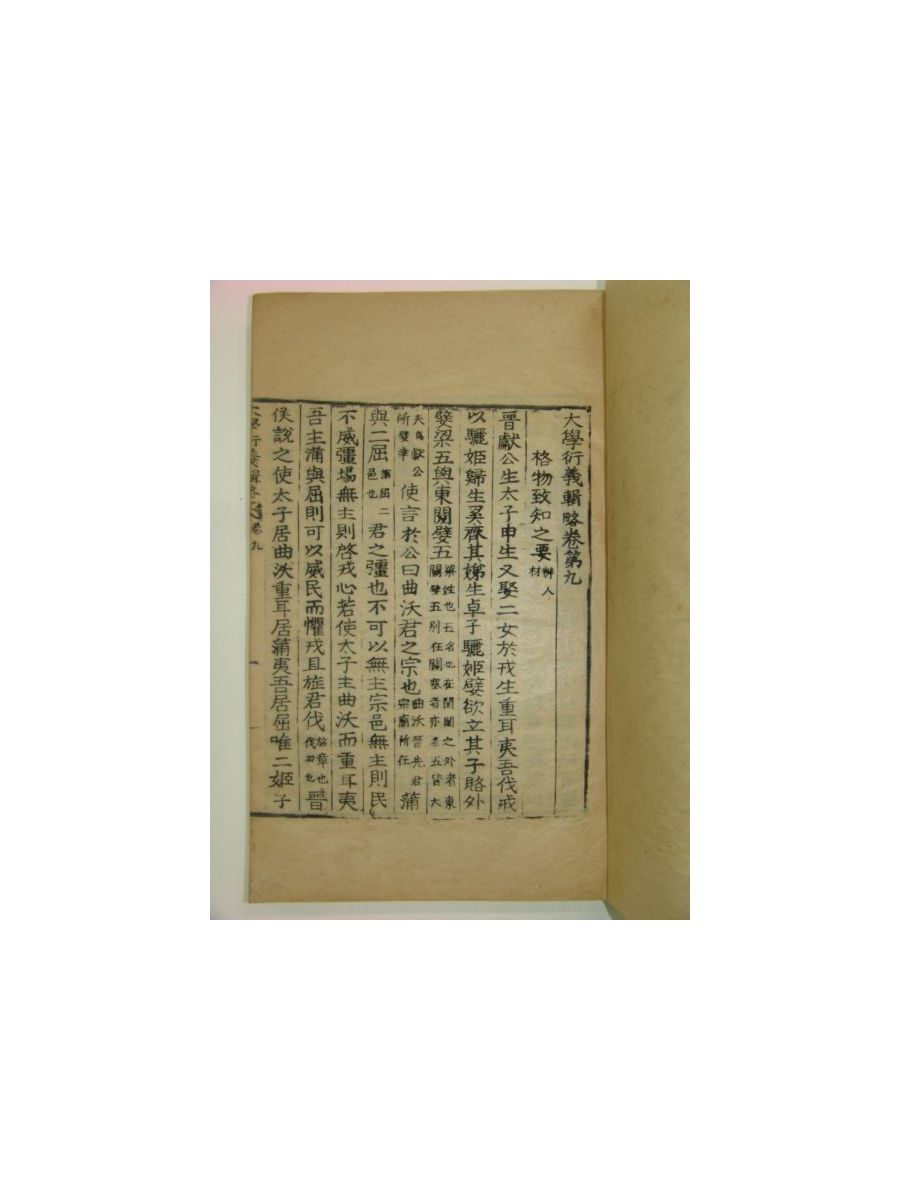 大學衍義輯略卷第九
格物致知之要 辨人材
晉獻公生太子申生又娶二女於戎生重耳夷吾伐戎
以驪姬歸生奚齊其娣生卓子驪姬嬖欲立其子賂外
嬖梁五與東關嬖五 梁姓也五名也在閨闥之外者東關嬖五別在關塞者亦名五皆大
夫爲獻公所嬖幸 使言於公曰曲沃君之宗也 曲沃晉先君宗廟所在 蒲
與二屈 蒲屈二邑也 君之疆也不可以無主宗邑無主則民
不威彊場無主則啓戎心若使太子主曲沃而重耳夷
吾主蒲與屈則可以威民而懼戎且旌君伐 旌章也伐功也 晉
侯說之使太子居曲沃重耳居蒲夷吾居屈唯二姬子
大學衍義輯略 卷九 一